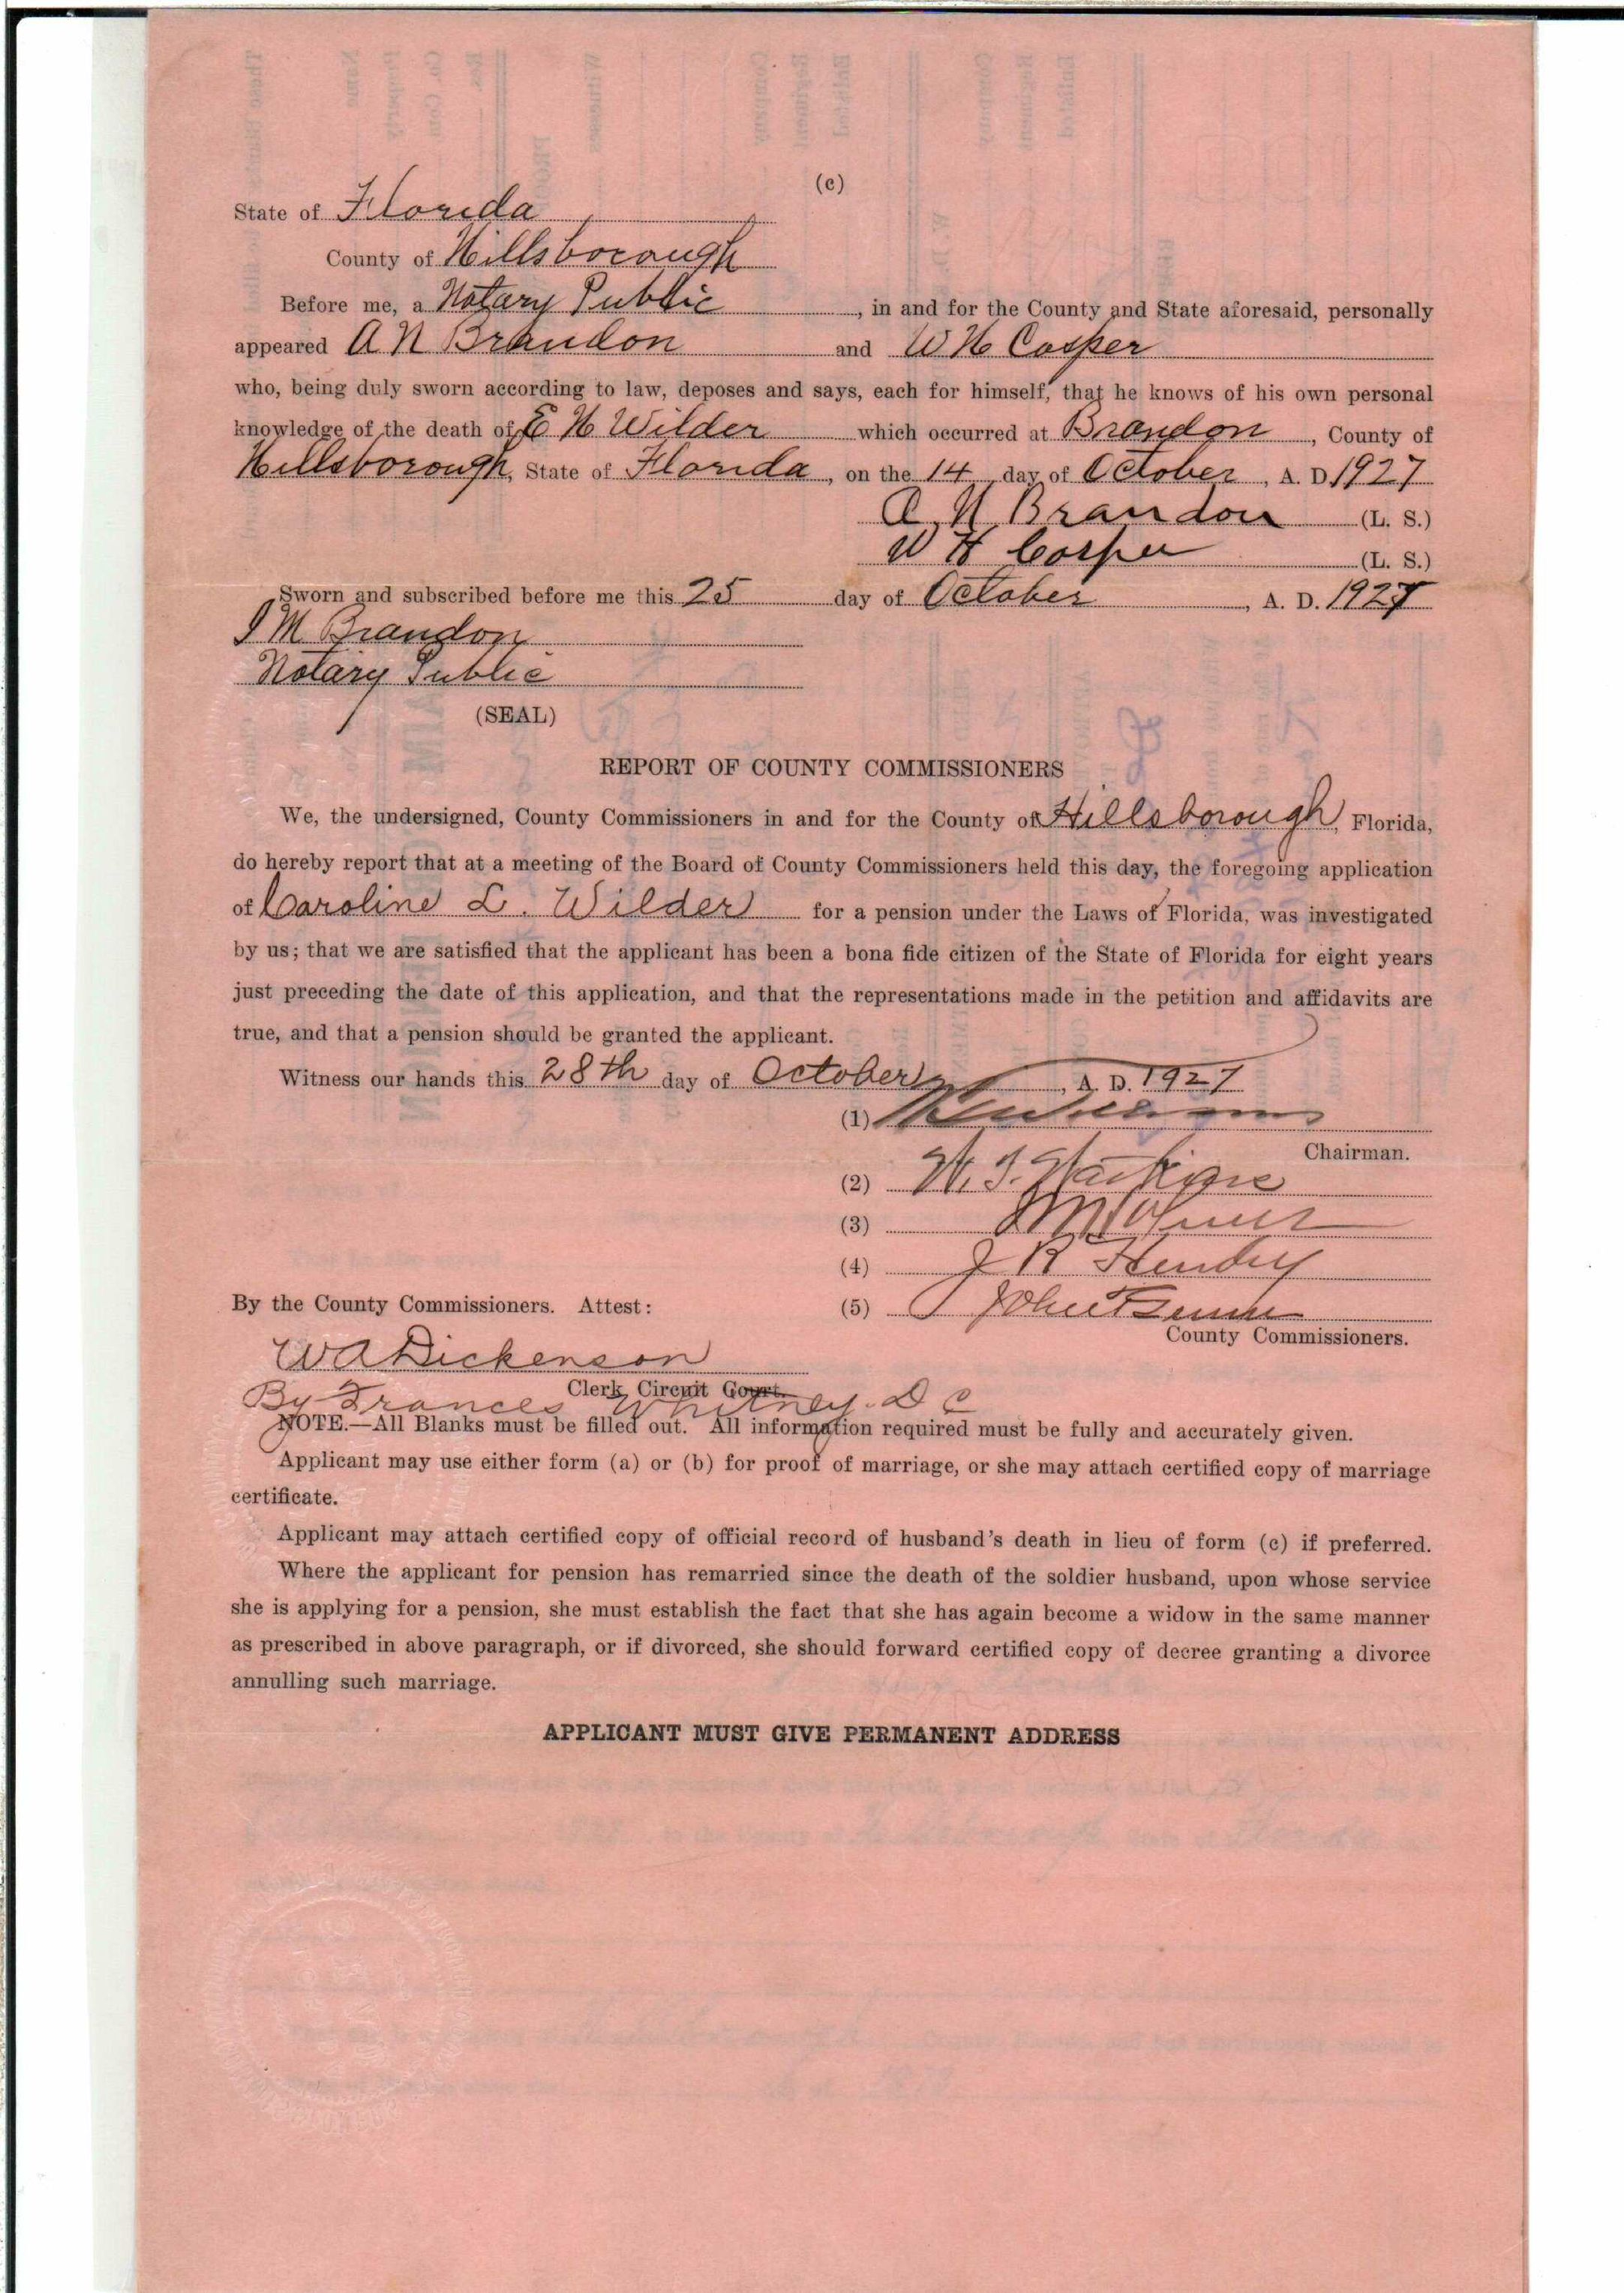 (c)
State of Florida
County of Hillsborough
Before me, a Notary Public, in and for the County and State aforesaid, personally
appeared A N Brandon and W H Casper
who, being duly sworn according to law, deposes and says, each for himself, that he knows of his own personal
knowledge of the death of E H Wilder which occurred at Brandon, County of
Hillsborough, State of Florida, on the 14 day of October, A. D. 1927
A. N. Brandon (L. S.)
W H Casper (L. S.)
Sworn and subscribed before me this 25 day of October, A. D. 1927
J M Brandon
Notary Public
(SEAL)
REPORT OF COUNTY COMMISSIONERS
We, the undersigned, County Commissioners in and for the County of Hillsborough, Florida,
do hereby report that at a meeting of the Board of County Commissioners held this day, the foregoing application
of Caroline L. Wilder for a pension under the Laws of Florida, was investigated
by us; that we are satisfied that the applicant has been a bona fide citizen of the State of Florida for eight years
just preceding the date of this application, and that the representations made in the petition and affidavits are
true, and that a pension should be granted the applicant.
Witness our hands this 28th day of October, A. D. 1927
(1)
Chairman.
(2) W. T.
(3)
(4) J R Hendry
By the County Commissioners. Attest: (5) John
County Commissioners.
W A Dickenson
Clerk Circuit Court.
By Frances Whitney. D C
NOTE.—All Blanks must be filled out. All information required must be fully and accurately given.
Applicant may use either form (a) or (b) for proof of marriage, or she may attach certified copy of marriage
certificate.
Applicant may attach certified copy of official record of husband's death in lieu of form (c) if preferred.
Where the applicant for pension has remarried since the death of the soldier husband, upon whose service
she is applying for a pension, she must establish the fact that she has again become a widow in the same manner
as prescribed in above paragraph, or if divorced, she should forward certified copy of decree granting a divorce
annulling such marriage.
APPLICANT MUST GIVE PERMANENT ADDRESS